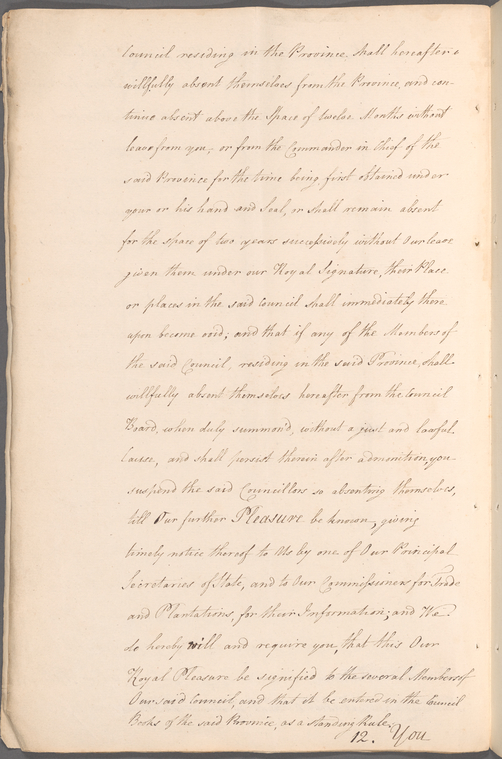 Council residing in the Province shall hereafter
willfully absent themselves from the Province, and con-
tinue absent above the Space of twelve Months without
leave from you, or from the Commander in Chief of the
said Province for the time being first obtained under
your or his hand and Seal, or shall remain absent
for the space of two years successively without Our leave
given them under our Royal Signature, their Place
or places in the said Council shall immediately there
upon become void; and that if any of the Members of
the said Council, residing in the said Province, shall
willfully absent themselves hereafter from the Council
Board, when duly summond, without a just and lawful
Cause, and shall persist therein after admonition, you
suspend the said Councillors so absenting themselves,
till Our further Pleasure be known, giving
timely notice thereof to Us by one of Our Principal
Secretaries of State, and to Our Commissioners for Trade
and Plantations, for their Information; and We
do hereby will and require you, that this Our
Royal Pleasure be signified to the several Members of
Our said Council, and that it be entered in the Council
Books of the said Province, as a standing Rule.
12. You